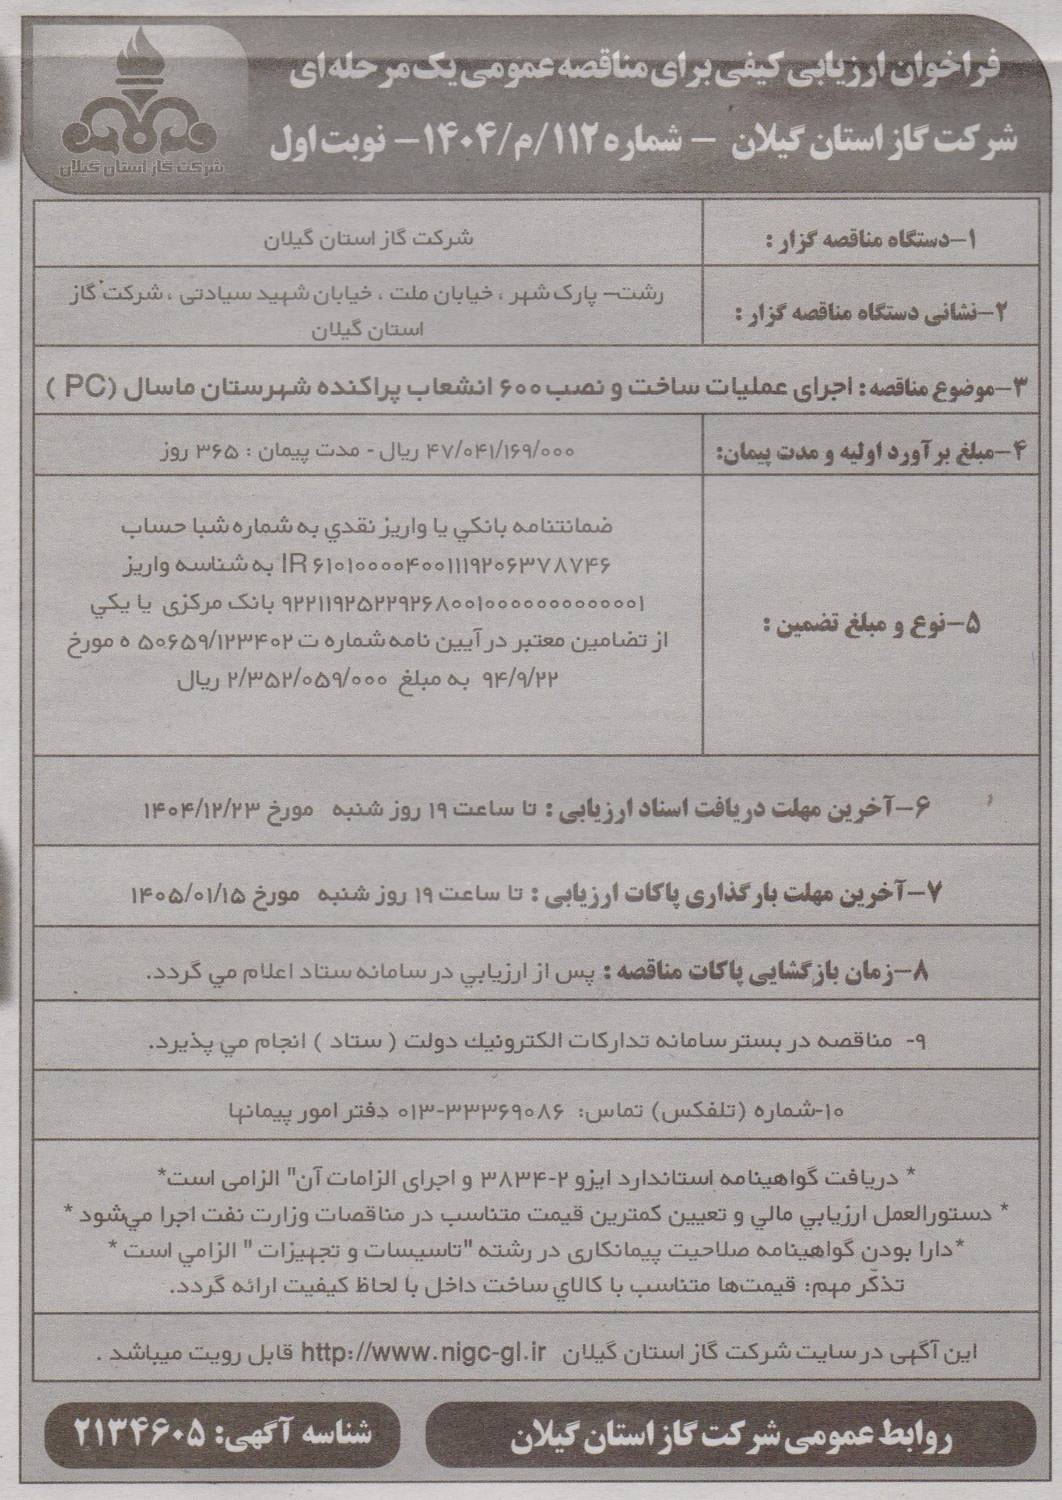 فراخوان ارزیابی کیفی برای مناقصه عمومی یک مرحله ای
شرکت گاز استان گیلان - شماره ۱۱۲/م/۱۴۰۴- نوبت اول
شرکت گاز استان گیلان
۱-دستگاه مناقصه گزار : شرکت گاز استان گیلان
۲-نشانی دستگاه مناقصه گزار : رشت– پارک شهر ، خیابان ملت ، خیابان شهید سیادتی ، شرکت گاز
استان گیلان
۳-موضوع مناقصه : اجرای عملیات ساخت و نصب ۶۰۰ انشعاب پراکنده شهرستان ماسال (PC )
۴-مبلغ برآورد اولیه و مدت پیمان: ۴۷/۰۴۱/۱۶۹/۰۰۰ ریال - مدت پیمان : ۳۶۵ روز
۵-نوع و مبلغ تضمین :
ضمانتنامه بانكي يا واريز نقدي به شماره شبا حساب
IR ۶۱۰۱۰۰۰۰۴۰۰۱۱۱۹۲۰۶۳۷۸۷۴۶ به شناسه واریز
۹۲۲۱۱۹۲۵۲۲۹۲۶۸۰۰۱۰۰۰۰۰۰۰۰۰۰۰۰۱ بانک مرکزی یا یکي
از تضامین معتبر در آیین نامه شماره ت ۵۰۶۵۹/۱۲۳۴۰۲ ه مورخ
۹۴/۹/۲۲ به مبلغ ۲/۳۵۲/۰۵۹/۰۰۰ ریال
۶-آخرین مهلت دریافت اسناد ارزیابی : تا ساعت ۱۹ روز شنبه مورخ ۱۴۰۴/۱۲/۲۳
۷-آخرین مهلت بارگذاری پاکات ارزیابی : تا ساعت ۱۹ روز شنبه مورخ ۱۴۰۵/۰۱/۱۵
۸-زمان بازگشایی پاکات مناقصه : پس از ارزيابي در سامانه ستاد اعلام مي گردد.
۹- مناقصه در بستر سامانه تدارکات الکترونیك دولت ( ستاد ) انجام مي پذیرد.
۱۰-شماره (تلفکس) تماس: ۳۳۳۶۹۰۸۶-۰۱۳ دفتر امور پیمانها
* دریافت گواهینامه استاندارد ایزو ۲-۳۸۳۴ و اجرای الزامات آن" الزامی است*
* دستورالعمل ارزيابي مالي و تعيين کمترین قیمت متناسب در مناقصات وزارت نفت اجرا مي‌شود *
*دارا بودن گواهینامه صلاحیت پیمانکاری در رشته "تاسیسات و تجهیزات " الزامي است *
تذکّر مهم: قیمت‌ها متناسب با کالاي ساخت داخل با لحاظ کیفیت ارائه گردد.
این آگهی در سایت شرکت گاز استان گیلان http://www.nigc-gl.ir قابل رویت میباشد .
روابط عمومی شرکت گاز استان گیلان
شناسه آگهی: ۲۱۳۴۶۰۵